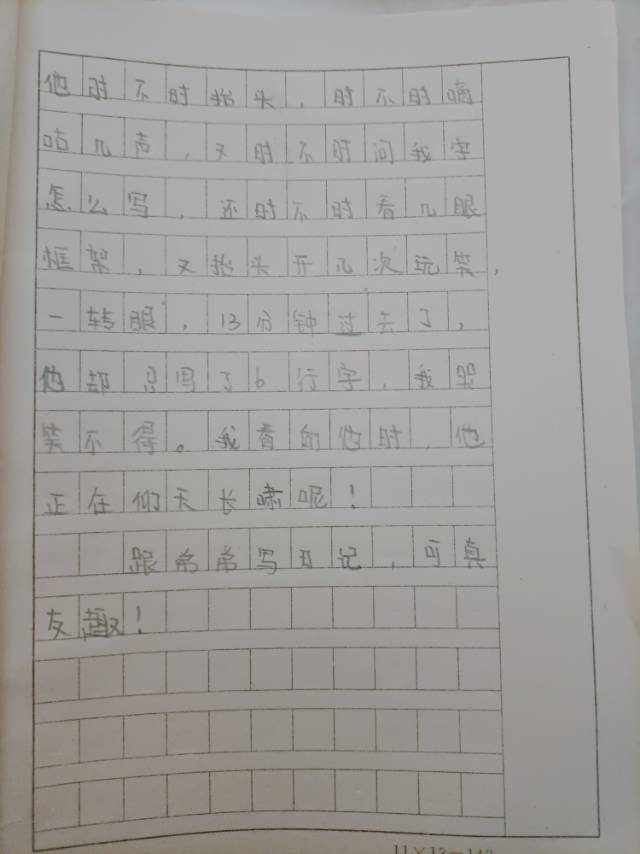 他时不时抬头，时不时嘀
咕几声，又时不时问我字
怎么写，还时不时看几眼
框架，又抬头开几次玩笑，
一转眼，13分钟过去了，
他却只写了6行字，我哭
笑不得。我看向他时，他
正在仰天长啸呢！
跟弟弟写日记，可真
友趣！